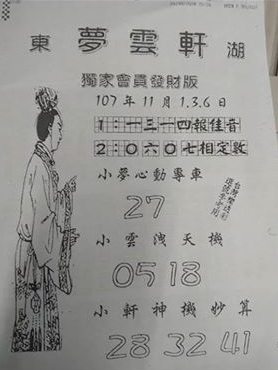 東 夢雲軒 湖
獨家會員發財版
107年11月1.3.6日
1:一三一四報佳音
2:060七相定數
小夢心動專車
27
小雲洩天機
05 18
小軒神機妙算
28 32 41